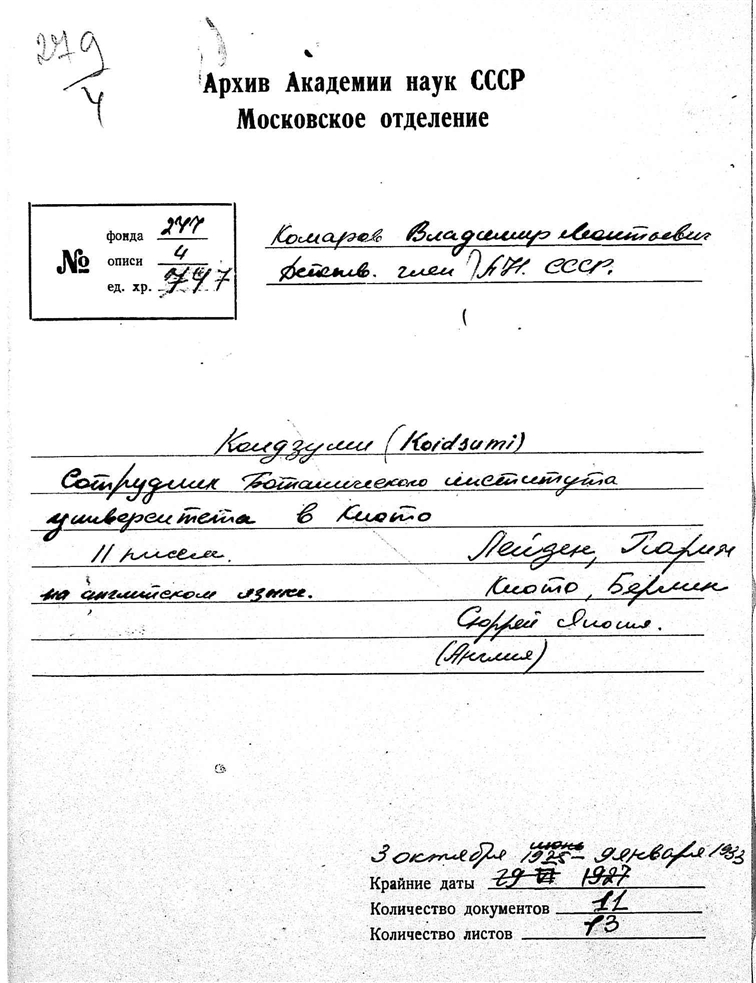 279
4
Архив Академии наук СССР
Московское отделение
№
фонда 277
описи 4
ед. хр. 747
Комаров Владимир Леонтьевич
Действ. член АН. СССР.
Коидзуми (Koidsumi)
Сотрудник Ботанического института
университета в Киото
11 писем.
Лейден, Париж
на английском языке.
Киото, Берлин
Сюррей Япония.
(Англия)
июнь
3 октября 1925 – января 1933
Крайние даты 29 VI 1927
Количество документов 11
Количество листов 13